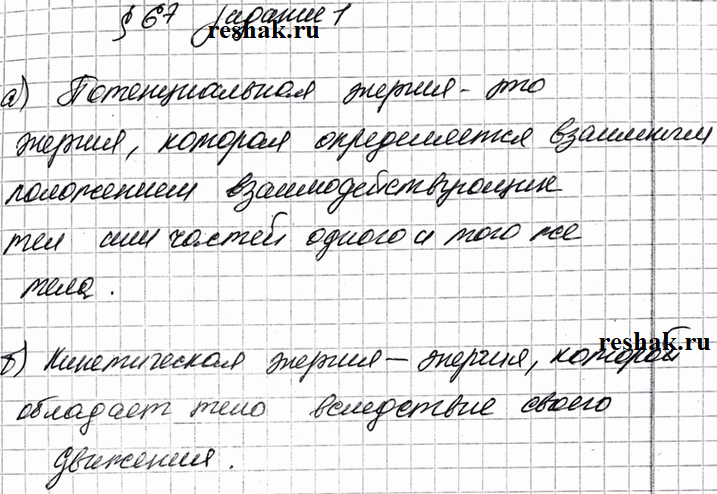 § 67 Задание 1
reshak.ru
а) Потенциальная энергия - это
энергия, которая определяется взаимным
положением взаимодействующих
тел или частей одного и того же
тела.
reshak.ru
б) Кинетическая энергия — энергия, которой
обладает тело вследствие своего
движения.